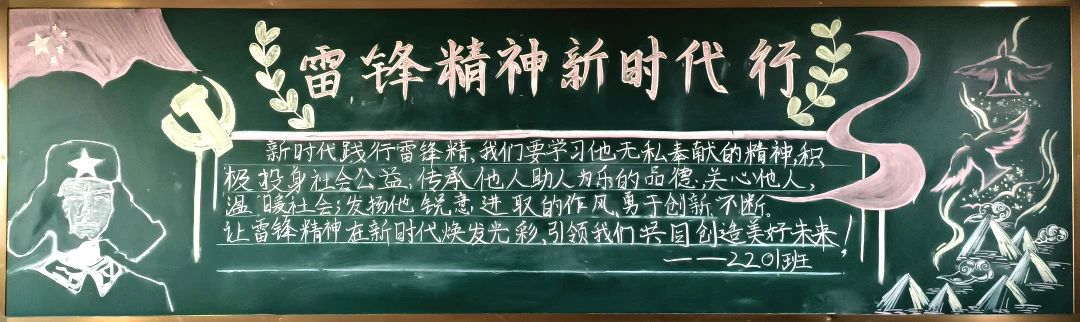 雷锋精神新时代行
新时代践行雷锋精,我们要学习他无私奉献的精神,积
极投身社会公益;传承他人助人为乐的品德,关心他人,
温暖社会;发扬他锐意进取的作风,勇于创新,不断。
让雷锋精神在新时代焕发光彩,引领我们共同创造美好未来!
——2201班